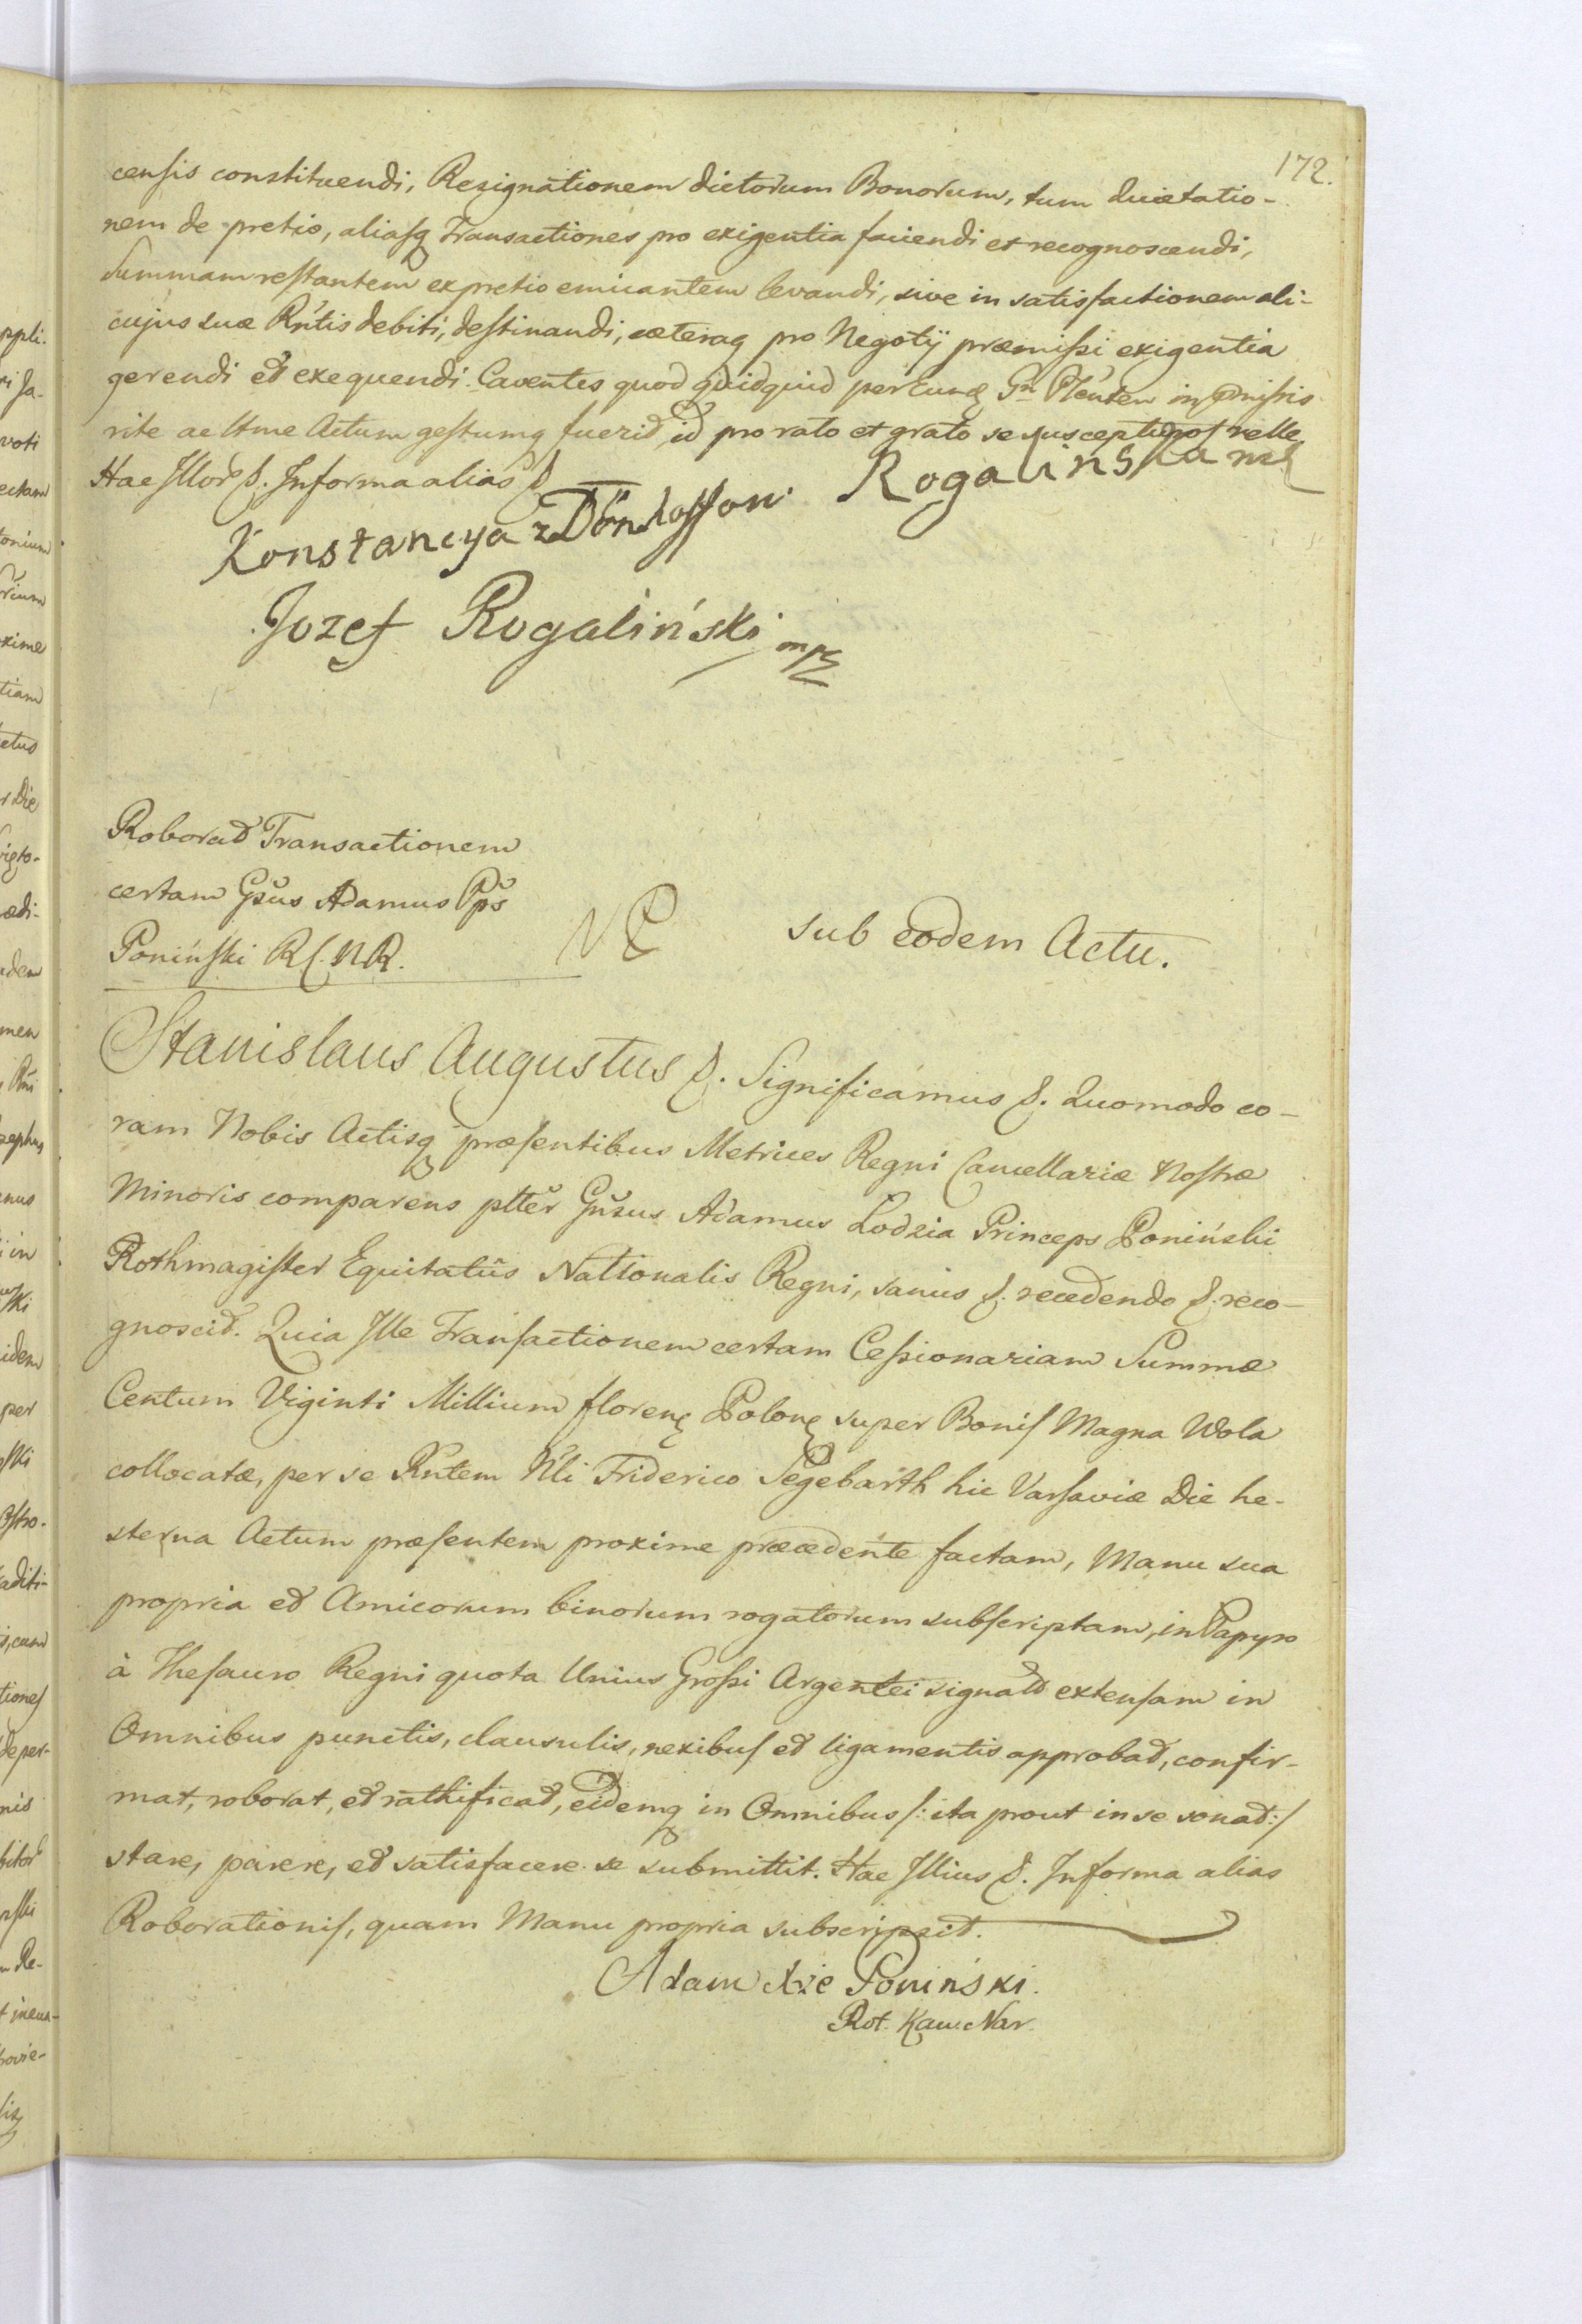 172.
censis constituendi, Resignationem dictorum Bonorum, tum Quietatio-
nem de pretio, aliasq Transactiones pro exigentia faciendi et recognoscendi,
Summam restantem ex pretio emicantem levandi, sive in satisfactionem ali-
cujus suæ Rntis debiti, destinandi, cæteraq pro Negotÿ præmissi exigentia
gerendi et exequendi. Caventes quod quidquid per Eund Gn Plenten in pmissis
rite ac ltme Actum gestumq fuerit, id pro rato et grato se suscepturos velle
Hac Illor &. In forma alias &
Konstancya z Dönhoffow Rogalinska mp
Jozef Rogaliński mp
Roborat Transactionem
certam Gsus Adamus Pps
Poniński R C. N R.
NP
sub eodem Actu.
Stanislaus Augustus &. Significamus &. Quomodo co-
ram Nobis Actisq præsentibus Metrices Regni Cancellariæ Nostræ
Minoris comparens pltter Gnsus Adamus Lodzia Princeps Poniński
Rothmagister Equitatûs Nationalis Regni, sanus &. recedendo &. reco-
gnoscit. Quia Ille Transactionem certam Cessionariam Summæ
Centum Viginti Millium floren Polon super Bonis Magna Wola
collocatæ, per se Rntem Nli Friderico Segebarth hic Varsaviæ Die he-
sterna Actum præsentem proxime præcedente factam, Manu sua
propria et Amicorum binorum rogatorum subscriptam, in Papyro
à Thesauro Regni quota Unius Grossi Argentei signato extensam in
Omnibus punctis, clausulis, nexibus et ligamentis approbat, confir-
mat, roborat, et rathificat, eidemq in Omnibus /: ita prout in se sonat :/
stare, parere, et satisfacere se submittit. Hac Illius &. In forma alias
Roborationis, quam Manu propria subscripsit.
Adam Xże Poniński.
Rot. Kaw. Nar.